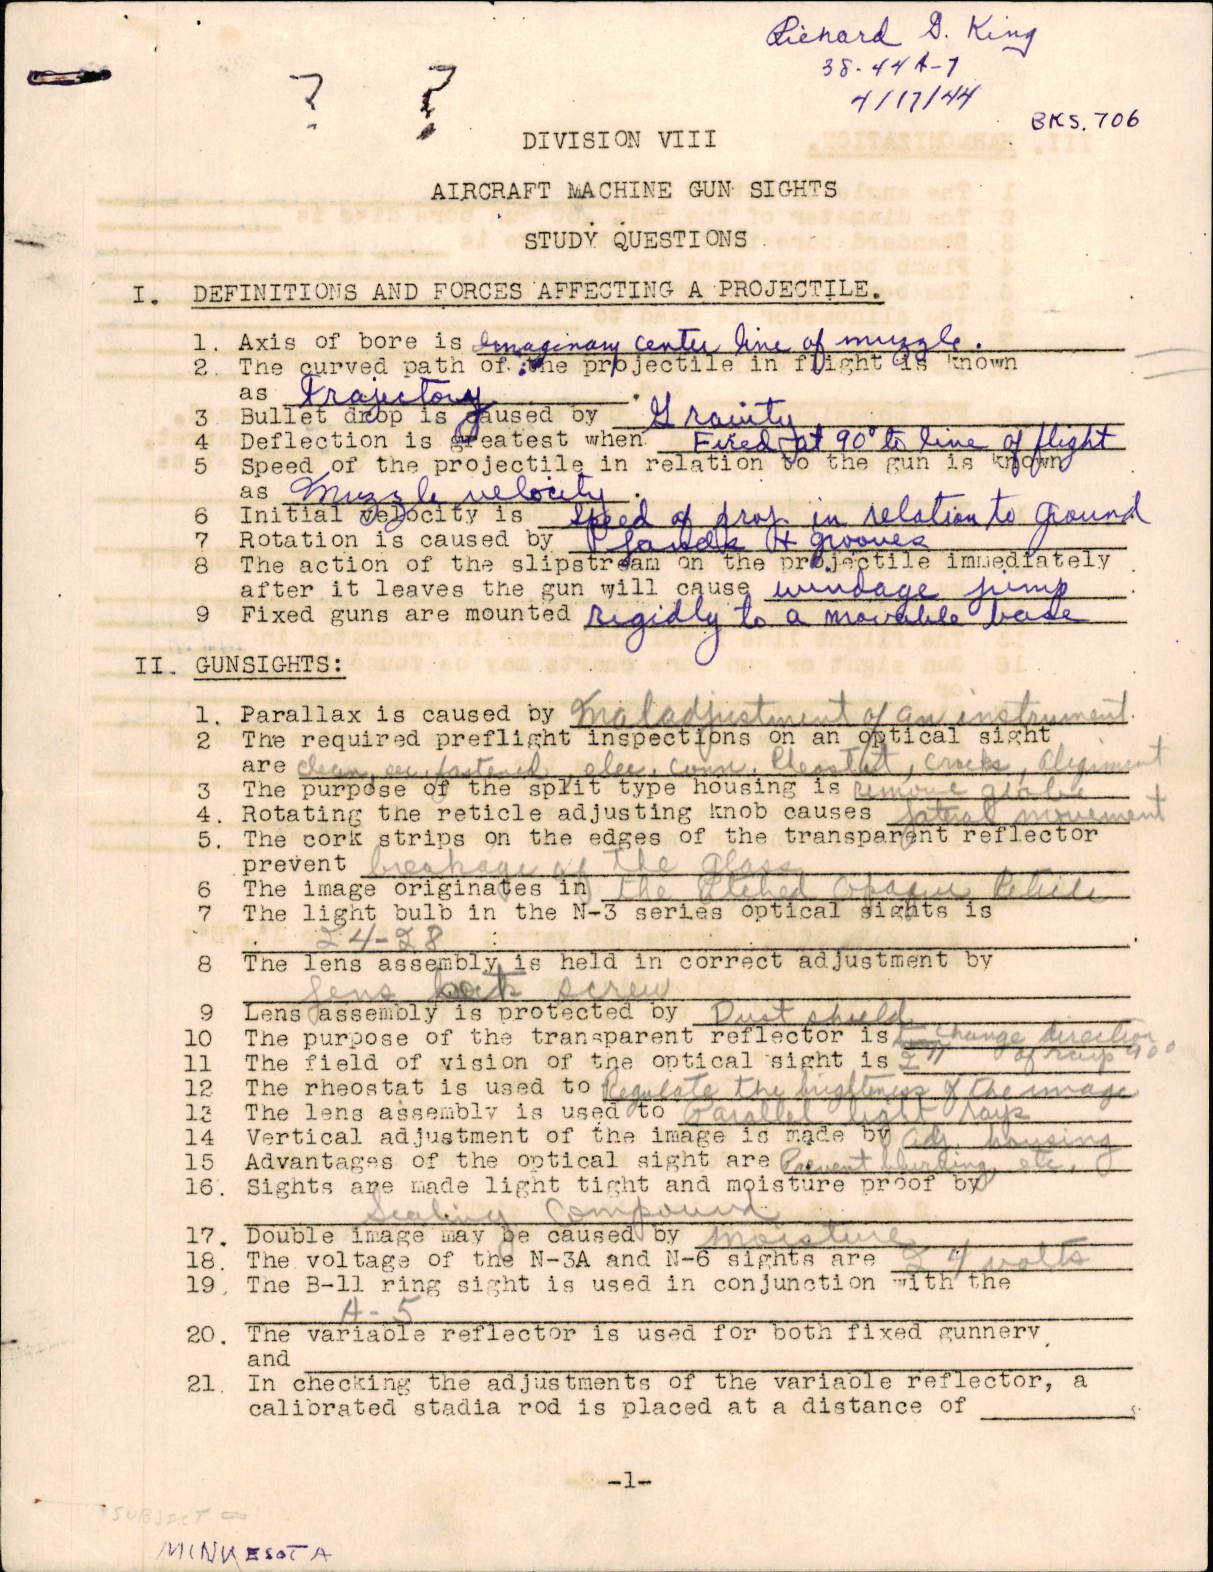 Richard G. King
38-44A-7
4/17/44
BKS. 706
? ?
DIVISION VIII
AIRCRAFT MACHINE GUN SIGHTS
STUDY QUESTIONS
I. DEFINITIONS AND FORCES AFFECTING A PROJECTILE.
1. Axis of bore is Imaginary center line of muzzle.
2. The curved path of the projectile in flight is known
as Trajectory.
3 Bullet drop is caused by Gravity
4 Deflection is greatest when Fired at 90° to line of flight
5 Speed of the projectile in relation to the gun is known
as Muzzle velocity.
6 Initial velocity is Speed of proj. in relation to ground
7 Rotation is caused by lands & grooves
8 The action of the slipstream on the projectile immediately
after it leaves the gun will cause windage jump
9 Fixed guns are mounted Rigidly to a movable base
II. GUNSIGHTS:
1. Parallax is caused by Maladjustment of an instrument.
2 The required preflight inspections on an optical sight
are clean, fastened, elec. conn. Rheostat, cracks, Aligiment
3 The purpose of the split type housing is remove
4. Rotating the reticle adjusting knob causes lateral movement
5. The cork strips on the edges of the transparent reflector
prevent breakage of the glass
6 The image originates in the Etched Opaque Reticle
7 The light bulb in the N-3 series optical sights is
24-28
8 The lens assembly is held in correct adjustment by
lens lock screw
9 Lens assembly is protected by Dust shield
10 The purpose of the transparent reflector is change direction
of rays 90°
11 The field of vision of the optical sight is
12 The rheostat is used to Regulate the brightness of the image
13 The lens assembly is used to Parallel light rays
14 Vertical adjustment of the image is made by adj. housing
15 Advantages of the optical sight are Prevent blurring, etc.
16. Sights are made light tight and moisture proof by
Sealing Compound
17. Double image may be caused by moisture
18. The voltage of the N-3A and N-6 sights are 24 volts
19. The B-11 ring sight is used in conjunction with the
A-5
20. The variable reflector is used for both fixed gunnery
and
21. In checking the adjustments of the variable reflector, a
calibrated stadia rod is placed at a distance of
-1-
SUBJECT
MINNESOTA